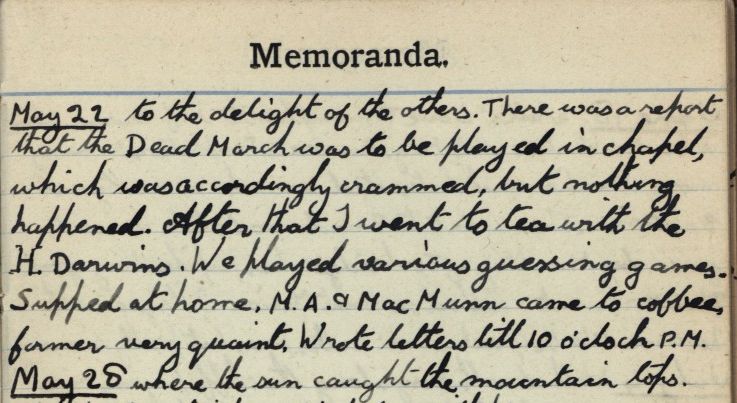 Memoranda.
May 22 to the delight of the others. There was a report
that the Dead March was to be played in chapel,
which was accordingly crammed, but nothing
happened. After that I went to tea with the
H. Darwins. We played various guessing games.
Supped at home. M.A. & MacMunn came to coffee,
former very quaint. Wrote letters till 10 o'clock P.M.
May 28 where the sun caught the mountain tops.